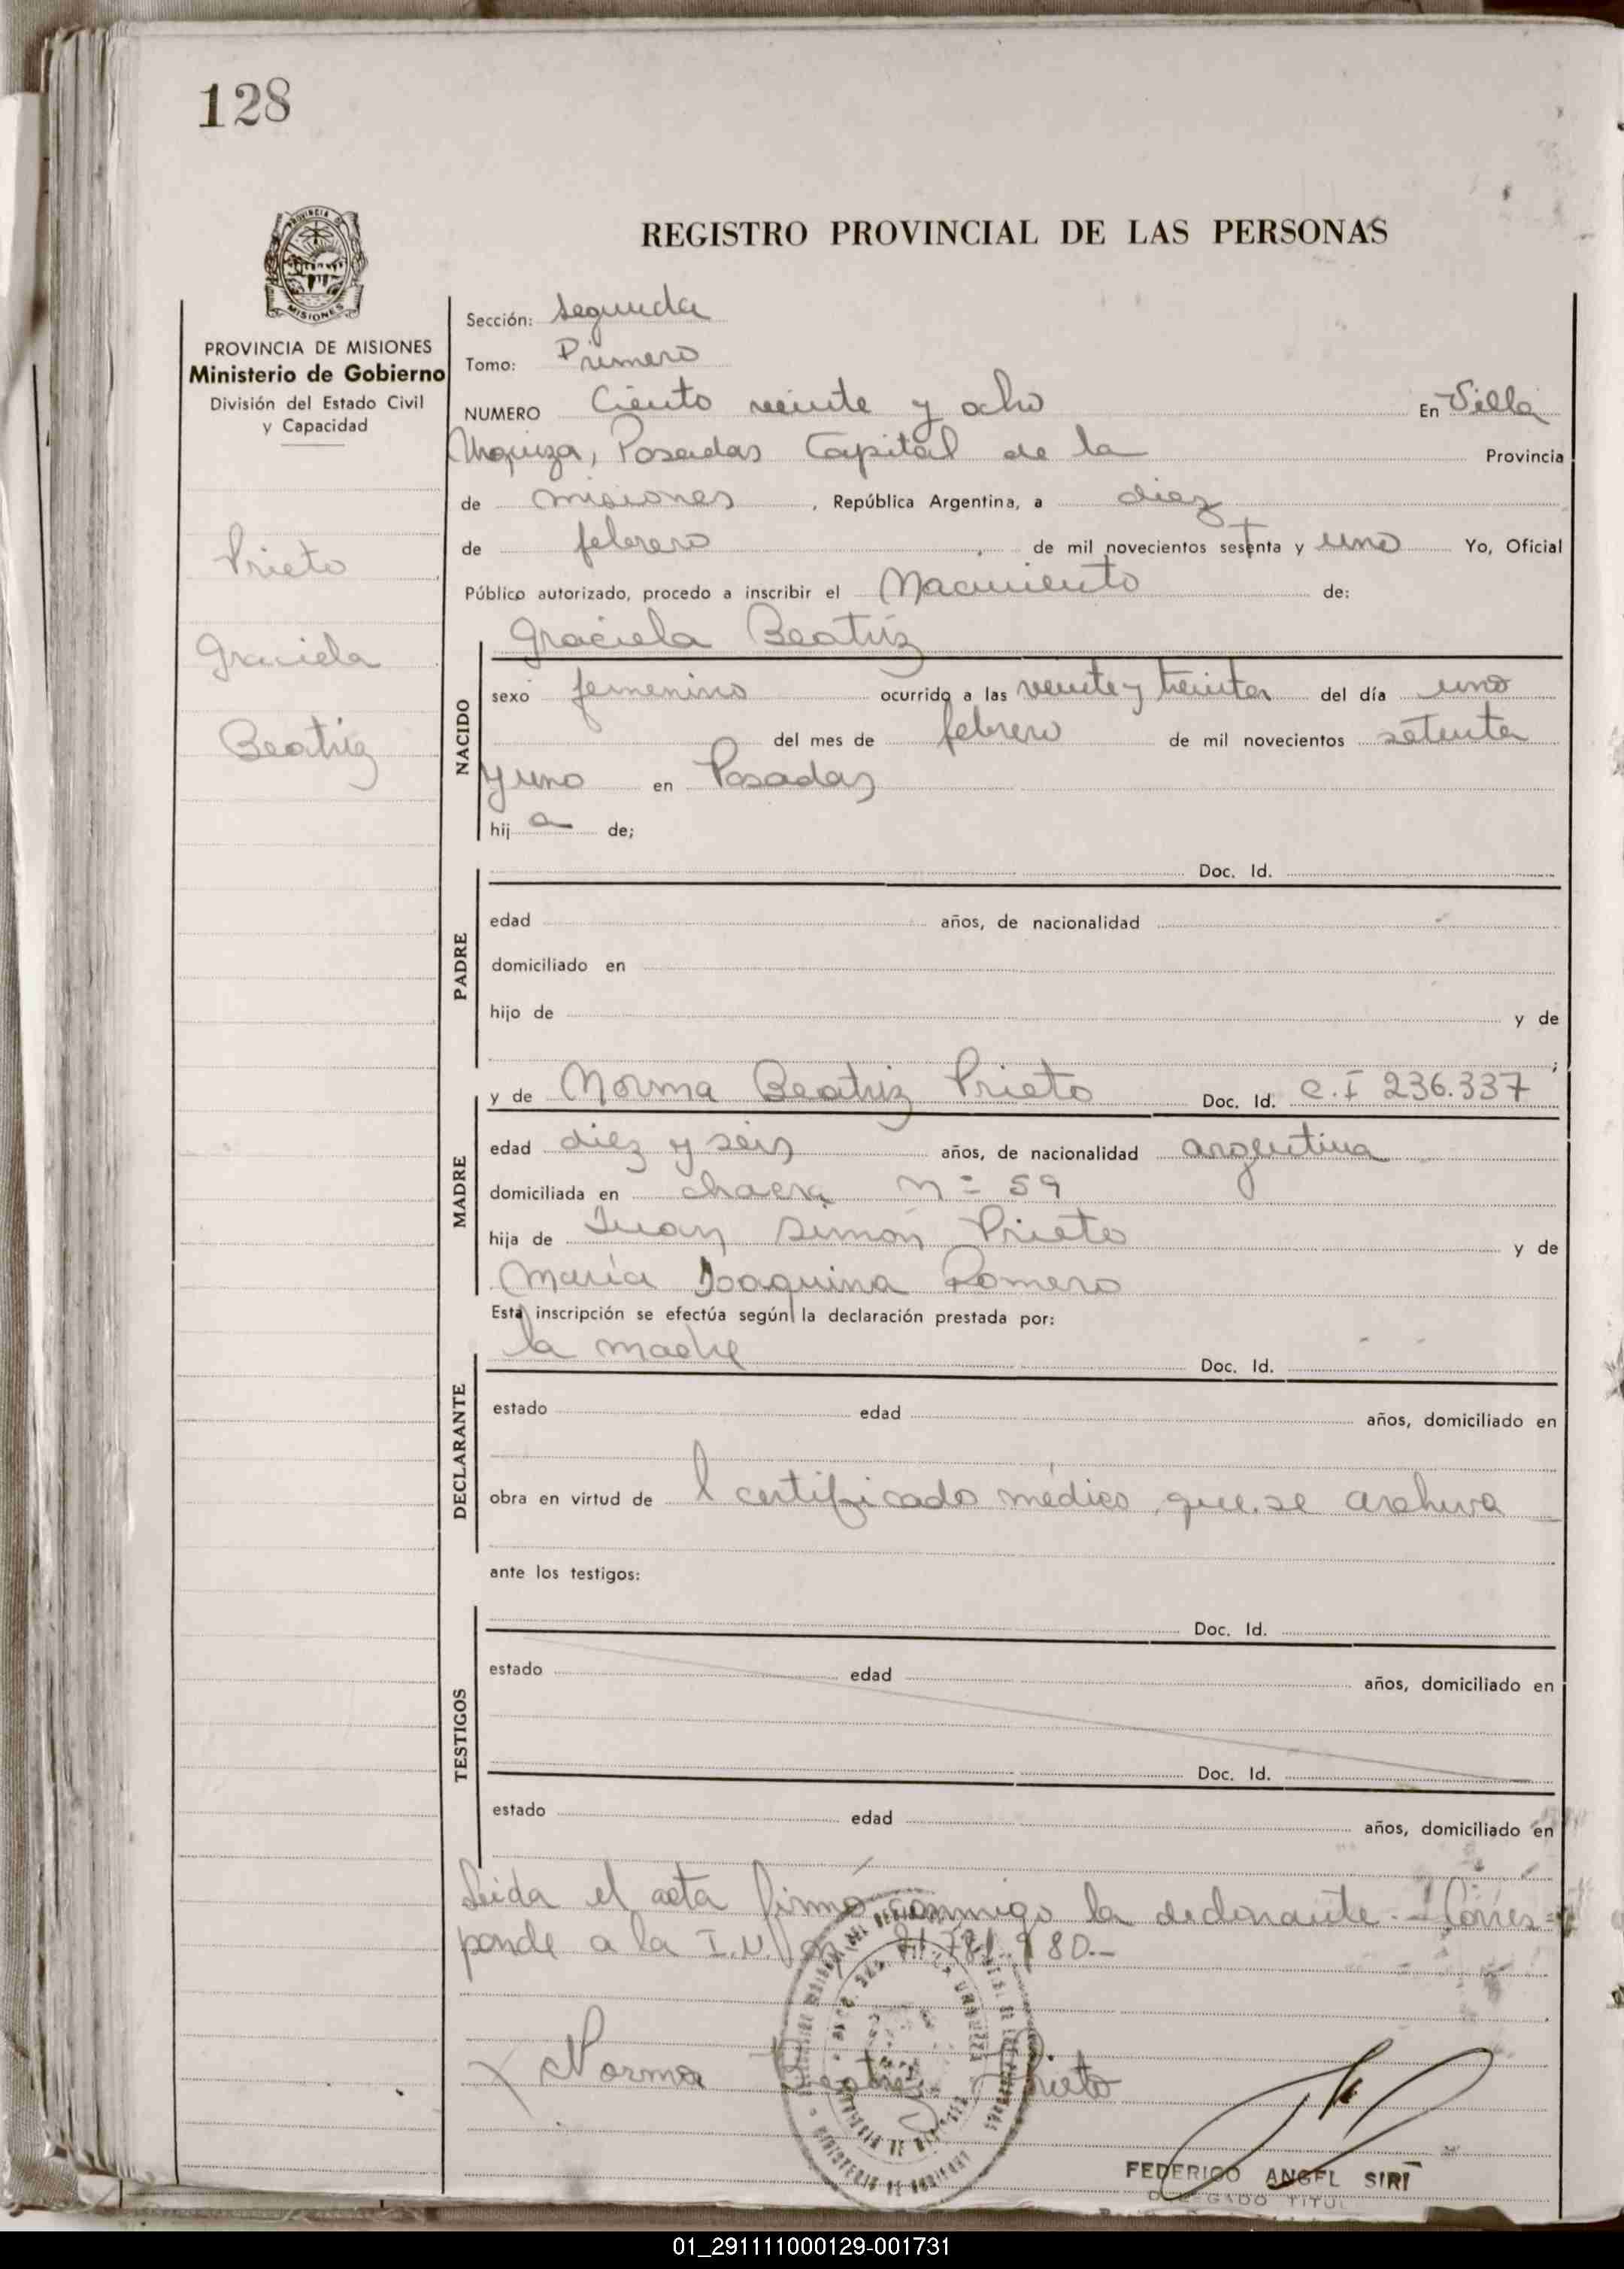 128
REGISTRO PROVINCIAL DE LAS PERSONAS
PROVINCIA DE MISIONES
Ministerio de Gobierno
División del Estado Civil
y Capacidad
Prieto
Graciela
Beatriz
Sección: segunda
Tomo: Primero
NUMERO Ciento veinte y ocho En Villa
Urquiza, Posadas Capital de la Provincia
de misiones, República Argentina, a diez
de febrero de mil novecientos sesenta y uno Yo, Oficial
Público autorizado, procedo a inscribir el Nacimiento de:
NACIDO
Graciela Beatriz
sexo femenino ocurrido a las veinte y treinta del día uno
del mes de febrero de mil novecientos setenta
y uno en Posadas
hija de;
PADRE
Doc. Id.
edad años, de nacionalidad
domiciliado en
hijo de y de
;
MADRE
y de Norma Beatriz Prieto Doc. Id. C.I 236.337
edad diez y seis años, de nacionalidad argentina
domiciliada en chacra n= 59
hija de Juan Simón Prieto y de
María Joaquina Romero
Esta inscripción se efectúa según la declaración prestada por:
DECLARANTE
la madre Doc. Id.
estado edad años, domiciliado en
obra en virtud de l certificado médico que se archiva
ante los testigos:
TESTIGOS
Doc. Id.
estado edad años, domiciliado en
Doc. Id.
estado edad años, domiciliado en
Leida el acta firmó conmigo la declarante.- Corres=
ponde a la I.N. 21.781.980.-
X Norma Beatriz Prieto
FEDERICO ANGEL SIRI
DELEGADO TITUL
01_291111000129-001731